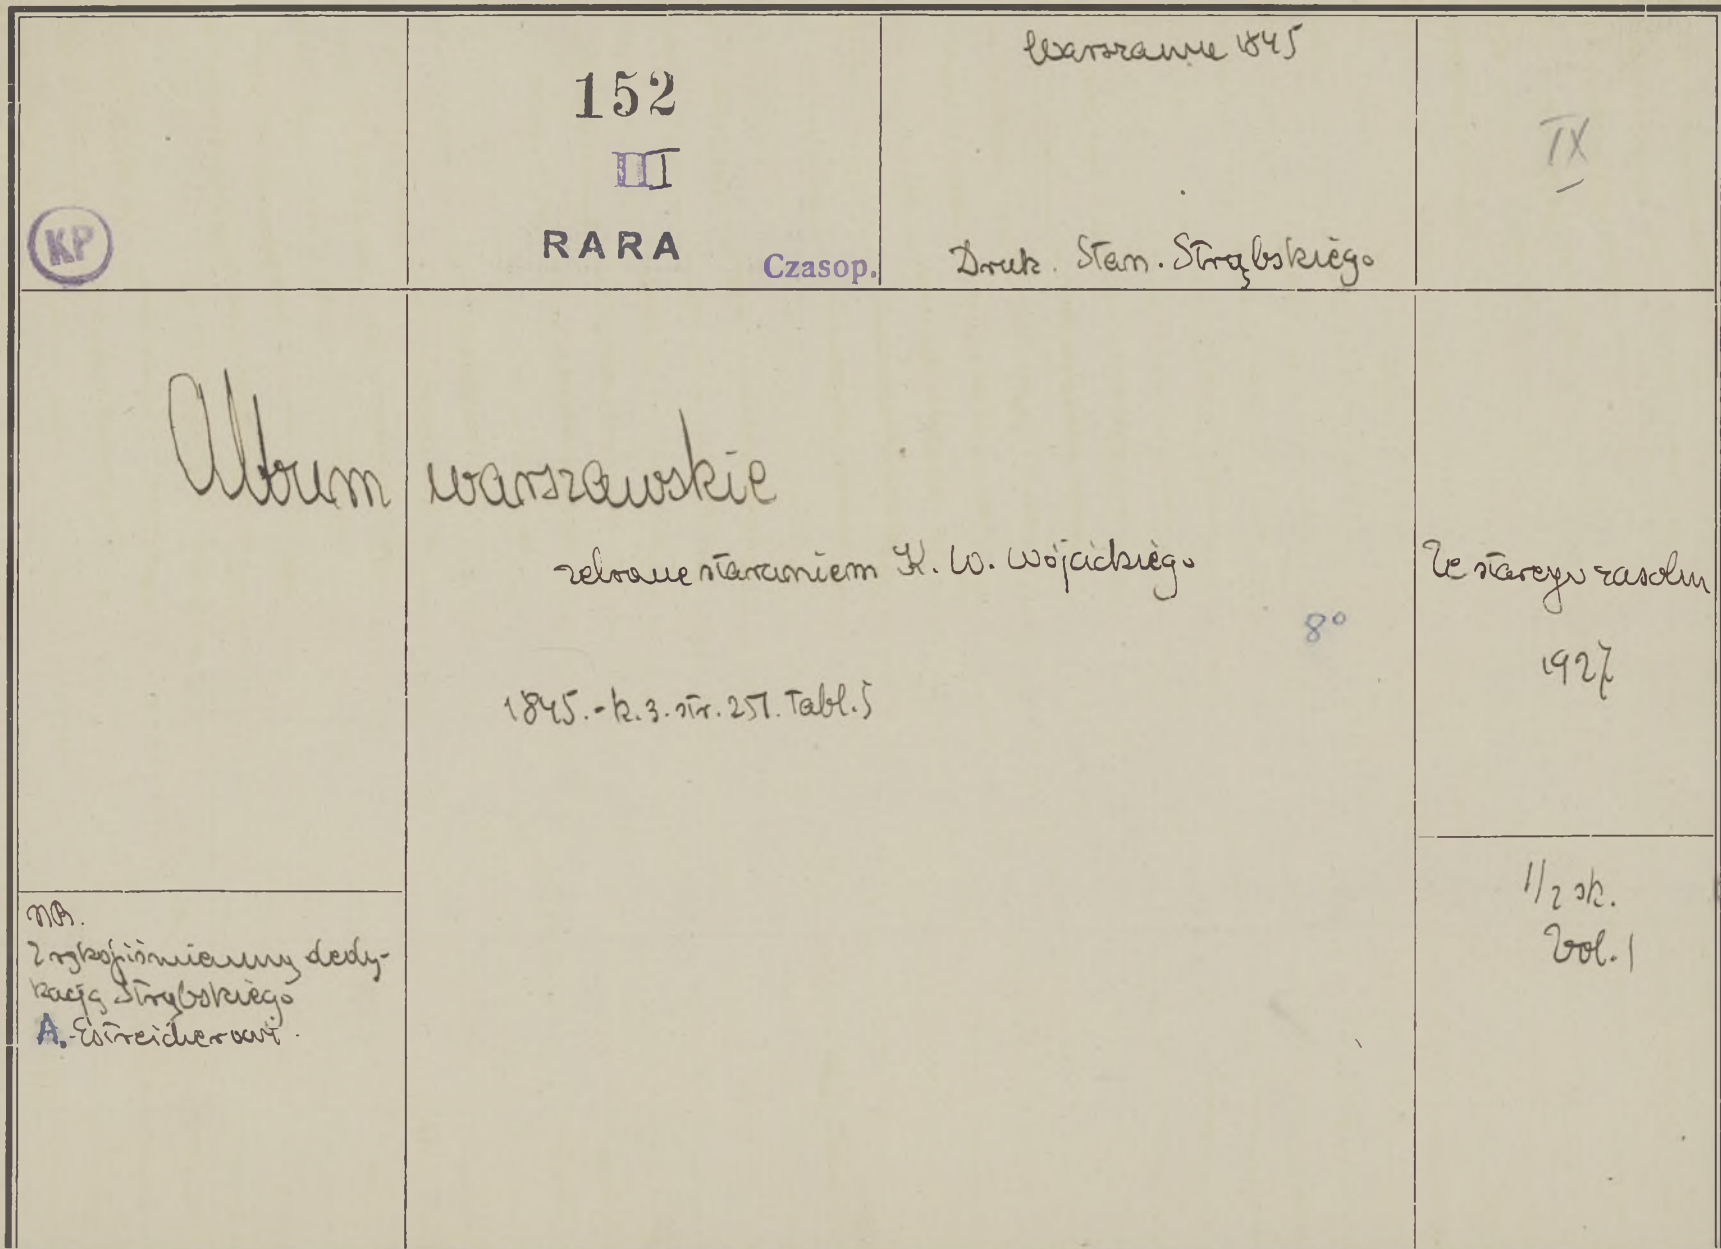 KP
152
III
RARA
Czasop.
Warszawie 1845
Druk. Stan. Strąbskiego
IX
Album warszawskie
zebrane staraniem K. W. Wójcickiego
8°
1845. - k. 3. str. 257. Tabl. 5
Ze starego zasobu
1927
1/2 sk.
Vol. 1
NB.
Z rękopiśmienną dedy-
kacją Strąbskiego
A. Estreicherowi.